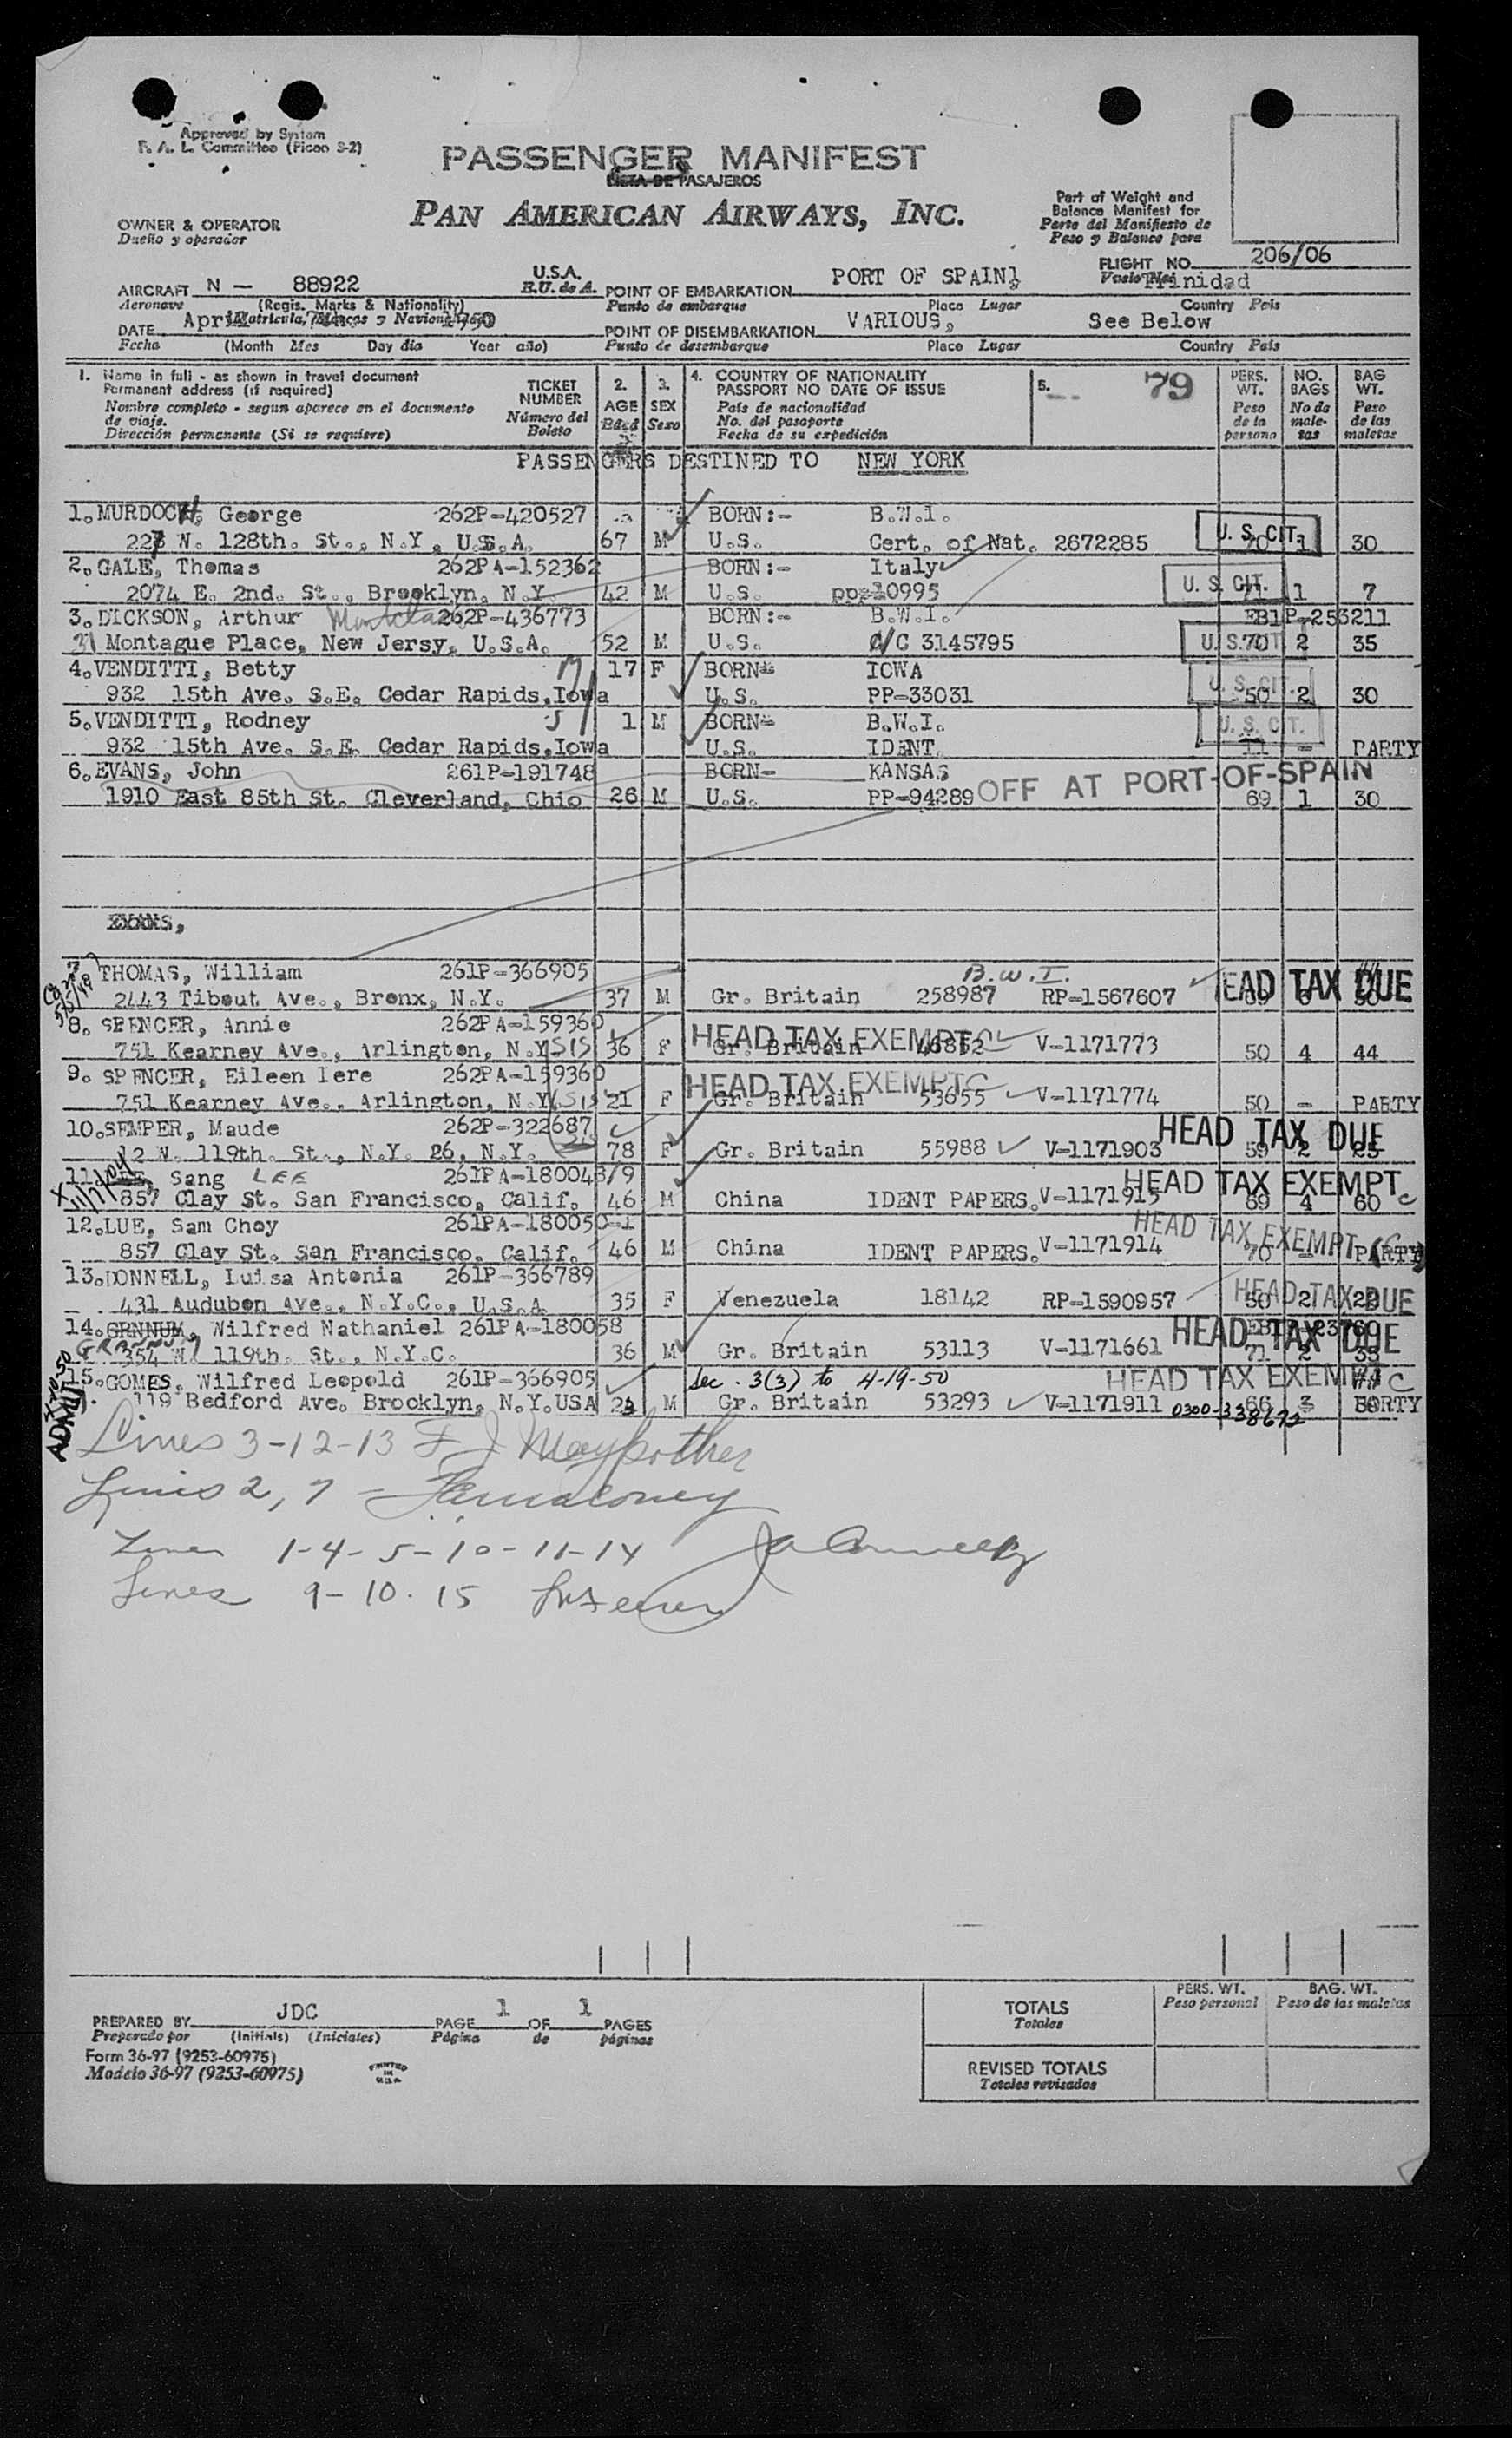 Approved by System
P. A. L. Committee (Picao S-2)
PASSENGER MANIFEST
LISTA DE PASAJEROS
PAN AMERICAN AIRWAYS, INC.
Part of Weight and
Balance Manifest for
Parte del Manifiesto de
Peso y Balance para
OWNER & OPERATOR
Dueño y operador
FLIGHT NO. 206/06
AIRCRAFT N - 88922 U.S.A. POINT OF EMBARKATION PORT OF SPAIN, Trinidad
Aeronave (Regis. Marks & Nationality) E.U. de A. Punto de embarque Place Lugar Country País
DATE April 1950 POINT OF DISEMBARKATION VARIOUS, See Below
Fecha (Month Mes Day día Year año) Punto de desembarque Place Lugar Country País
1. Name in full - as shown in travel document
Permanent address (if required)
Nombre completo - segun aparece en el documento
de viaje.
Dirección permanente (Si se requiere)
TICKET
NUMBER
Número del
Boleto
2.
AGE
Edad
3.
SEX
Sexo
4. COUNTRY OF NATIONALITY
PASSPORT NO DATE OF ISSUE
País de nacionalidad
No. del pasaporte
Fecha de su expedición
5. 79
PERS.
WT.
Peso
de la
persona
NO.
BAGS
No de
male-
tas
BAG
WT.
Peso
de las
maletas
PASSENGERS DESTINED TO NEW YORK
1. MURDOCH, George 262P-420527 BORN:- B.W.I.
W. 128th. St., N.Y, U.S.A. 67 M U.S. Cert. of Nat. 2672285 U. S. CIT. 70 1 30
2. GALE, Thomas 262PA-152362 BORN:- Italy
2074 E. 2nd. St., Brooklyn, N.Y. 42 M U.S. pp-10995 U. S. CIT. 1 7
3. DICKSON, Arthur 262P-436773 BORN:- B.W.I. EB1P-253211
31 Montague Place, New Jersy, U.S.A. 52 M U.S. C/C 3145795 U. S. CIT. 70 2 35
4. VENDITTI, Betty 17 F BORN- IOWA
932 15th Ave. S.E. Cedar Rapids, Iowa U.S. PP-33031 U. S. CIT. 50 2 30
5. VENDITTI, Rodney 1 M BORN- B.W.I.
932 15th Ave. S.E. Cedar Rapids, Iowa U.S. IDENT. U. S. CIT. 11 - PARTY
6. EVANS, John 261P-191748 BORN- KANSAS
1910 East 85th St. Cleverland, Ohio 26 M U.S. PP-94289 OFF AT PORT-OF-SPAIN 69 1 30
EVANS,
7. THOMAS, William 261P-366905 B.W.I.
2443 Tibout Ave., Bronx, N.Y. 37 M Gr. Britain 258987 RP-1567607 HEAD TAX DUE
8. SPENCER, Annie 262PA-159360
751 Kearney Ave., Arlington, N.Y 36 F Gr. Britain HEAD TAX EXEMPT V-1171773 50 4 44
9. SPENCER, Eileen Iere 262PA-159360
751 Kearney Ave., Arlington, N.Y 21 F Gr. Britain 53655 HEAD TAX EXEMPT C V-1171774 50 - PARTY
10. SEMPER, Maude 262P-322687
W. 119th. St., N.Y. 26, N.Y. 78 F Gr. Britain 55988 V-1171903 HEAD TAX DUE 59 2 25
11. Sang LEE 261PA-180048/9
857 Clay St. San Francisco, Calif. 46 M China IDENT PAPERS. V-1171915 HEAD TAX EXEMPT C 69 4 60
12. LUE, Sam Choy 261PA-180050-1
857 Clay St. San Francisco, Calif. 46 M China IDENT PAPERS. V-1171914 HEAD TAX EXEMPT C 70 - PARTY
13. DONNELL, Luisa Antonia 261P-366789
431 Audubon Ave., N.Y.C., U.S.A. 35 F Venezuela 18142 RP-1590957 HEAD TAX DUE 50 2
14. GRNNUM, Wilfred Nathaniel 261PA-180058
354 W. 119th. St., N.Y.C. 36 M Gr. Britain 53113 V-1171661 HEAD TAX DUE 71 2 35
15. GOMES, Wilfred Leopold 261P-366905 Sec. 3(3) to 4-19-50 HEAD TAX EXEMPT C
119 Bedford Ave. Brooklyn, N.Y. USA M Gr. Britain 53293 V-1171911 0300-338672 66 3
ADMIT
Lines 3-12-13
Lines 2, 7
Lines 1-4-5-10-11-14
Lines 9-10-15
PREPARED BY JDC PAGE 1 OF 1 PAGES
Preparado por (Initials) (Iniciales) Página de páginas
Form 36-97 (9253-60975)
Modelo 36-97 (9253-60975)
PRINTED
IN
U.S.A.
PERS. WT.
Peso personal
BAG. WT.
Peso de las maletas
TOTALS
Totales
REVISED TOTALS
Totales revisados